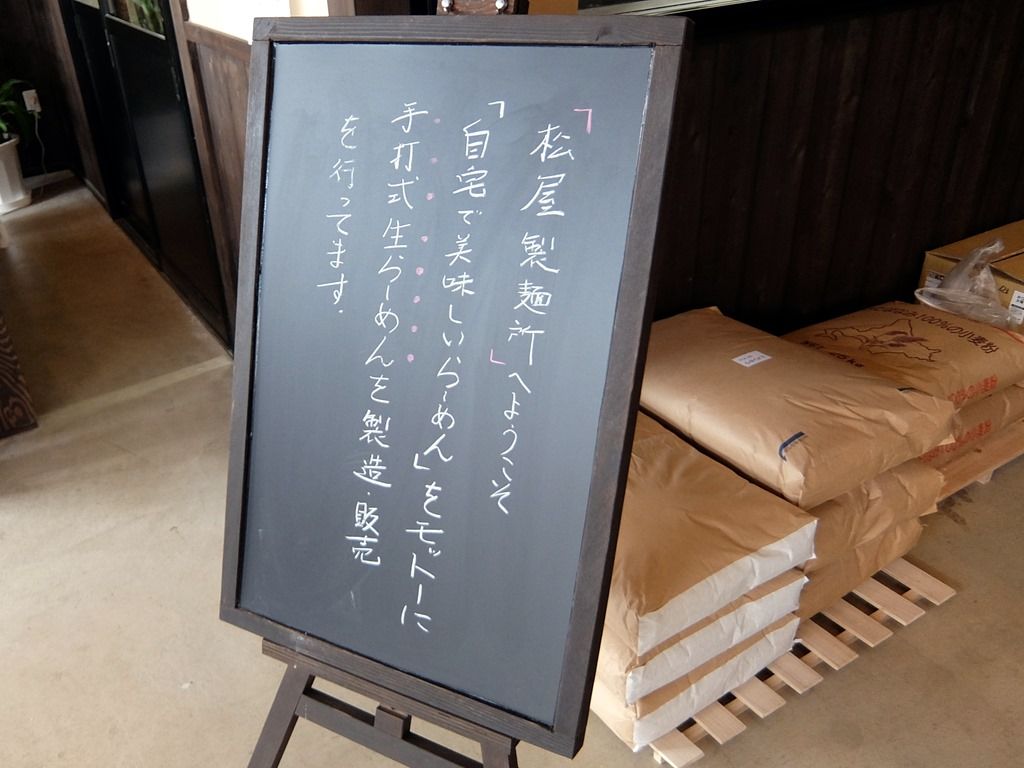 「松屋製麺所」へようこそ
「自宅で美味しいらーめん」をモットーに
手打式生らーめんを製造・販売
を行ってます.
100%の小麦粉